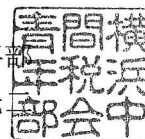 横浜中
間税会
青年部